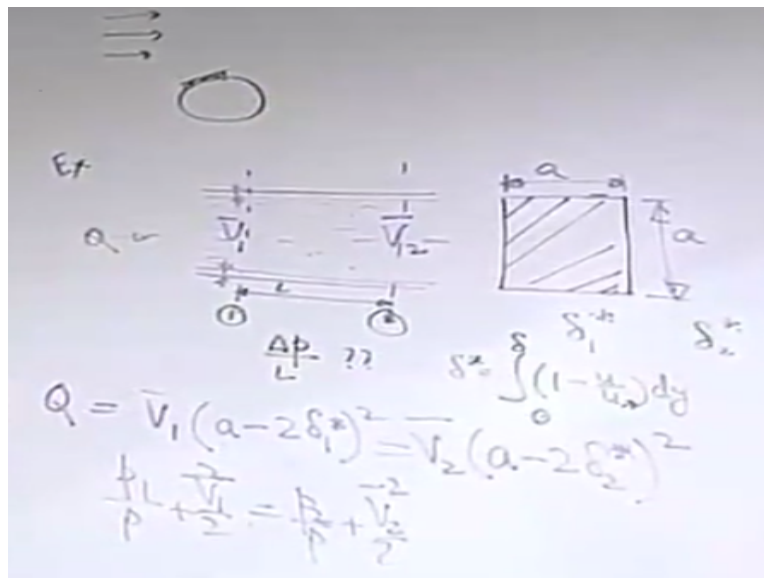 Ex
a
Q
V̄₁
V̄₁₂
a
L
①
②
Δp/L ??
δ₁*
δ₂*
δ* = ∫₀^δ (1 - u/u∞) dy
Q = V̄₁ (a - 2δ₁*)² = V̄₂ (a - 2δ₂*)²
p₁/ρ + V̄₁²/2 = p₂/ρ + V̄₂²/2